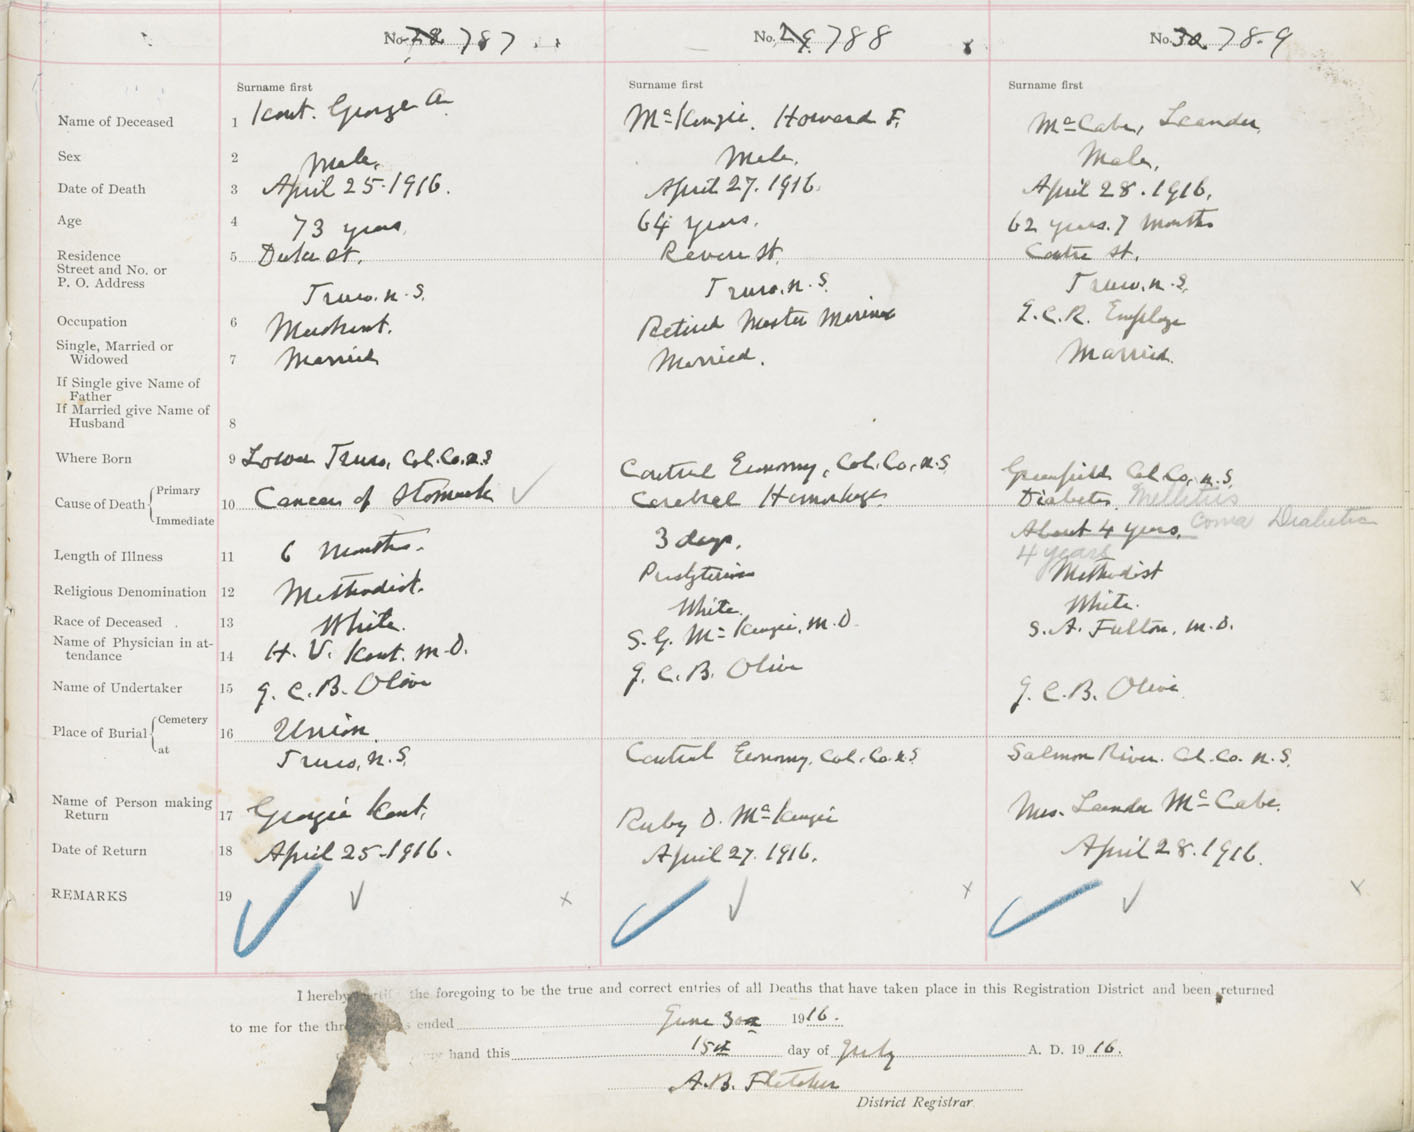 No. 28 787 No. 29 788 No. 30 789
Surname first Surname first Surname first
Name of Deceased 1 Kent. George A. McKenzie. Howard F. McCabe, Leander.
Sex 2 Male. Male. Male.
Date of Death 3 April 25-1916. April 27. 1916. April 28. 1916.
Age 4 73 years. 64 years. 62 years. 7 months
Residence 5 St. Revere St. Centre St.
Street and No. or
P. O. Address Truro. N.S. Truro. N.S. Truro. N.S.
Occupation 6 Merchant. Retired Master Mariner I.C.R. Employe
Single, Married or
Widowed 7 Married Married. Married.
If Single give Name of
Father
If Married give Name of
Husband 8
Where Born 9 Lower Truro, Col. Co. N.S Central Economy, Col. Co. N.S Greenfield Col. Co. N.S.
Cause of Death Primary 10 Cancer of Stomach Cerebral Hemorhage Diabetes. Mellitus
Immediate Coma Diabetic
Length of Illness 11 6 Months. 3 days. About 4 years. 4 years
Religious Denomination 12 Methodist. Presbyterian Methodist
Race of Deceased 13 White. White. White.
Name of Physician in at-
tendance 14 H. V. Kent. M.D. S. G. McKenzie, M.D. S. A. Fulton, M.D.
Name of Undertaker 15 G. C. B. Olive G. C. B. Olive G. C. B. Olive
Place of Burial Cemetery 16 Union.
at Truro, N.S. Central Economy, Col. Co. N.S Salmon River. Col. Co. N.S.
Name of Person making
Return 17 Georgie Kent. Ruby D. McKenzie Mrs. Leander McCabe.
Date of Return 18 April 25-1916. April 27. 1916. April 28. 1916.
REMARKS 19
I hereby the foregoing to be the true and correct entries of all Deaths that have taken place in this Registration District and been returned
to me for the ended June 30th 1916.
hand this 15th day of July A. D. 1916.
A. B. Fletcher
District Registrar